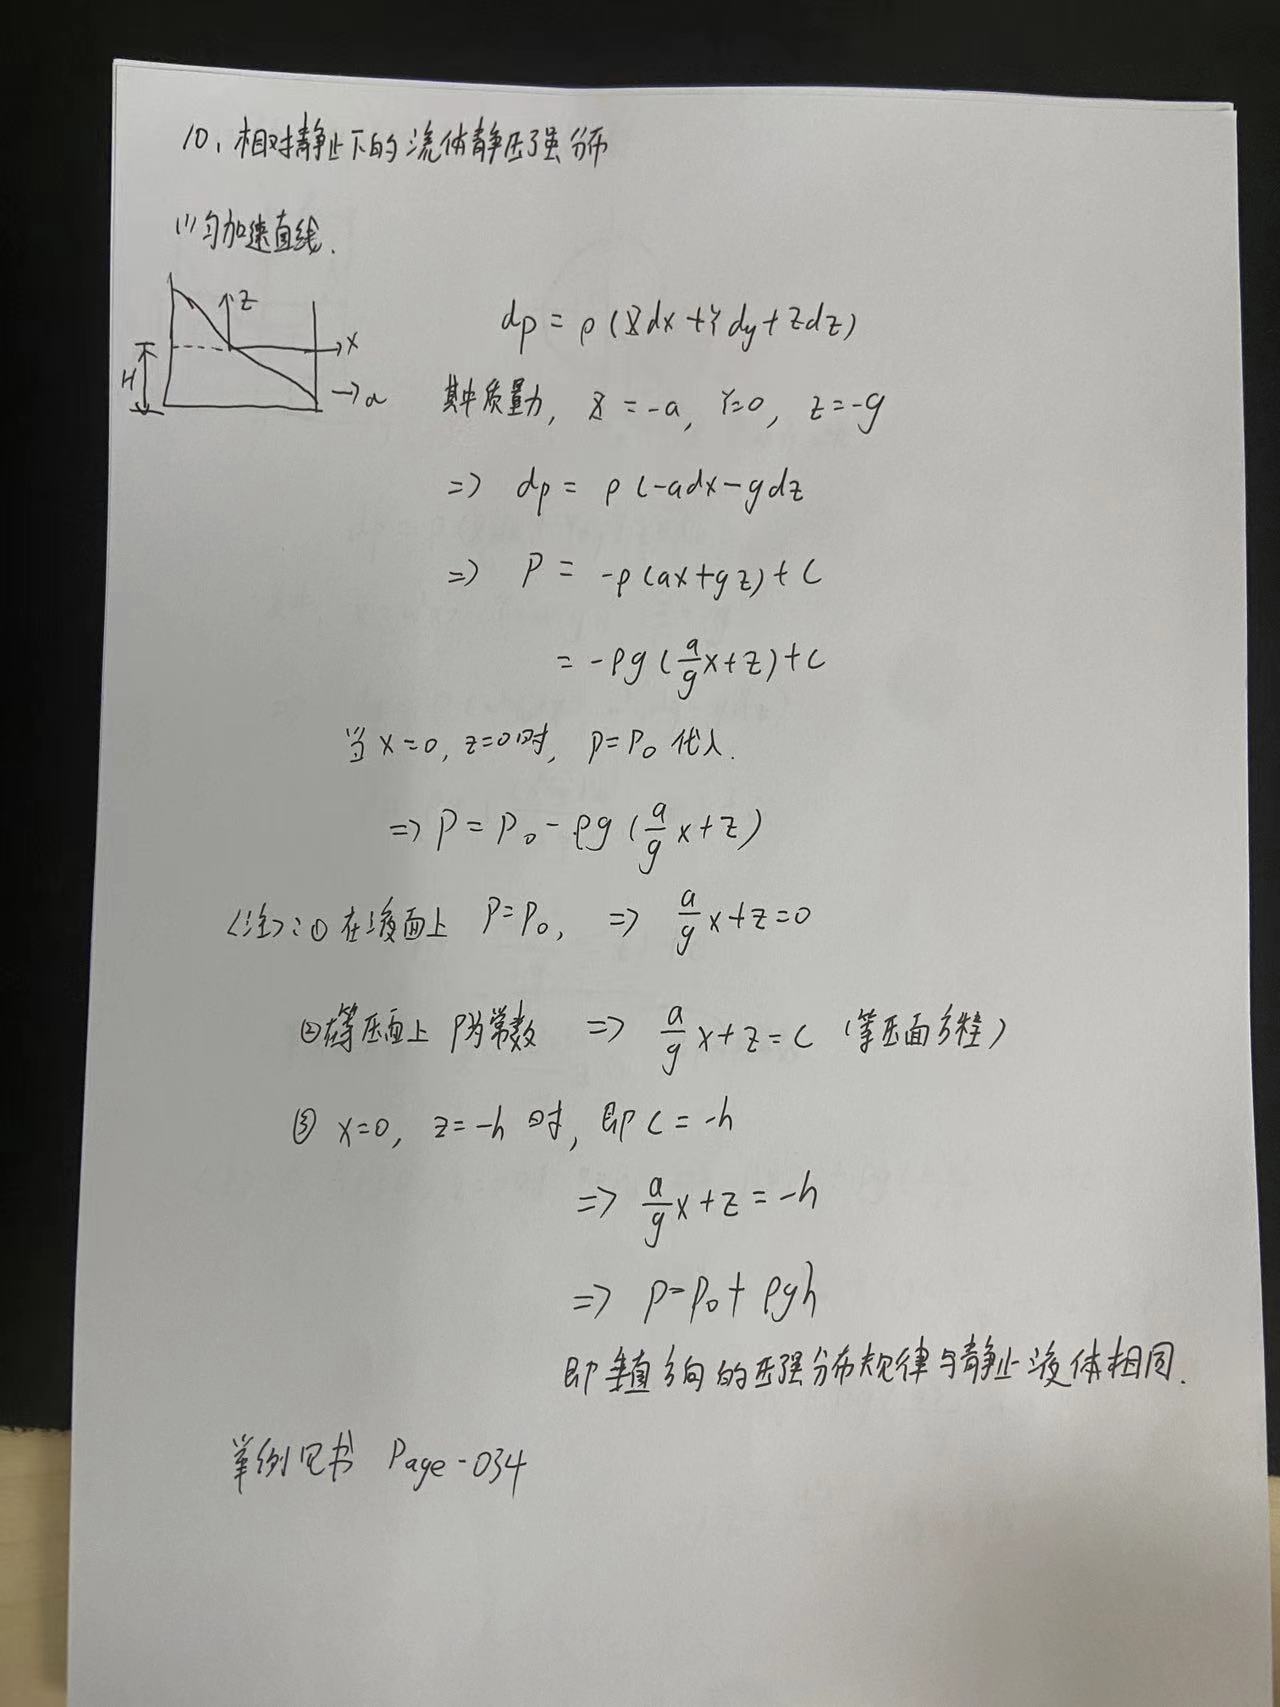 10、相对静止下的流体静压强分布
(1)匀加速直线.
z
x
H
→a
dp = ρ(Xdx+Ydy+Zdz)
其中质量力, X=-a, Y=0, Z=-g
=> dp = ρ(-adx-gdz
=> P = -ρ(ax+gz)+C
= -ρg(a/g x+z)+C
当x=0, z=0时, p=P₀代入.
=> P=P₀-ρg(a/g x+z)
<注>:① 在液面上 P=P₀, => a/g x+z=0
②在等压面上 P为常数 => a/g x+z=C (等压面方程)
③ x=0, z=-h时, 即C=-h
=> a/g x+z=-h
=> p=p₀+ρgh
即垂直方向的压强分布规律与静止液体相同.
举例见书 Page-034